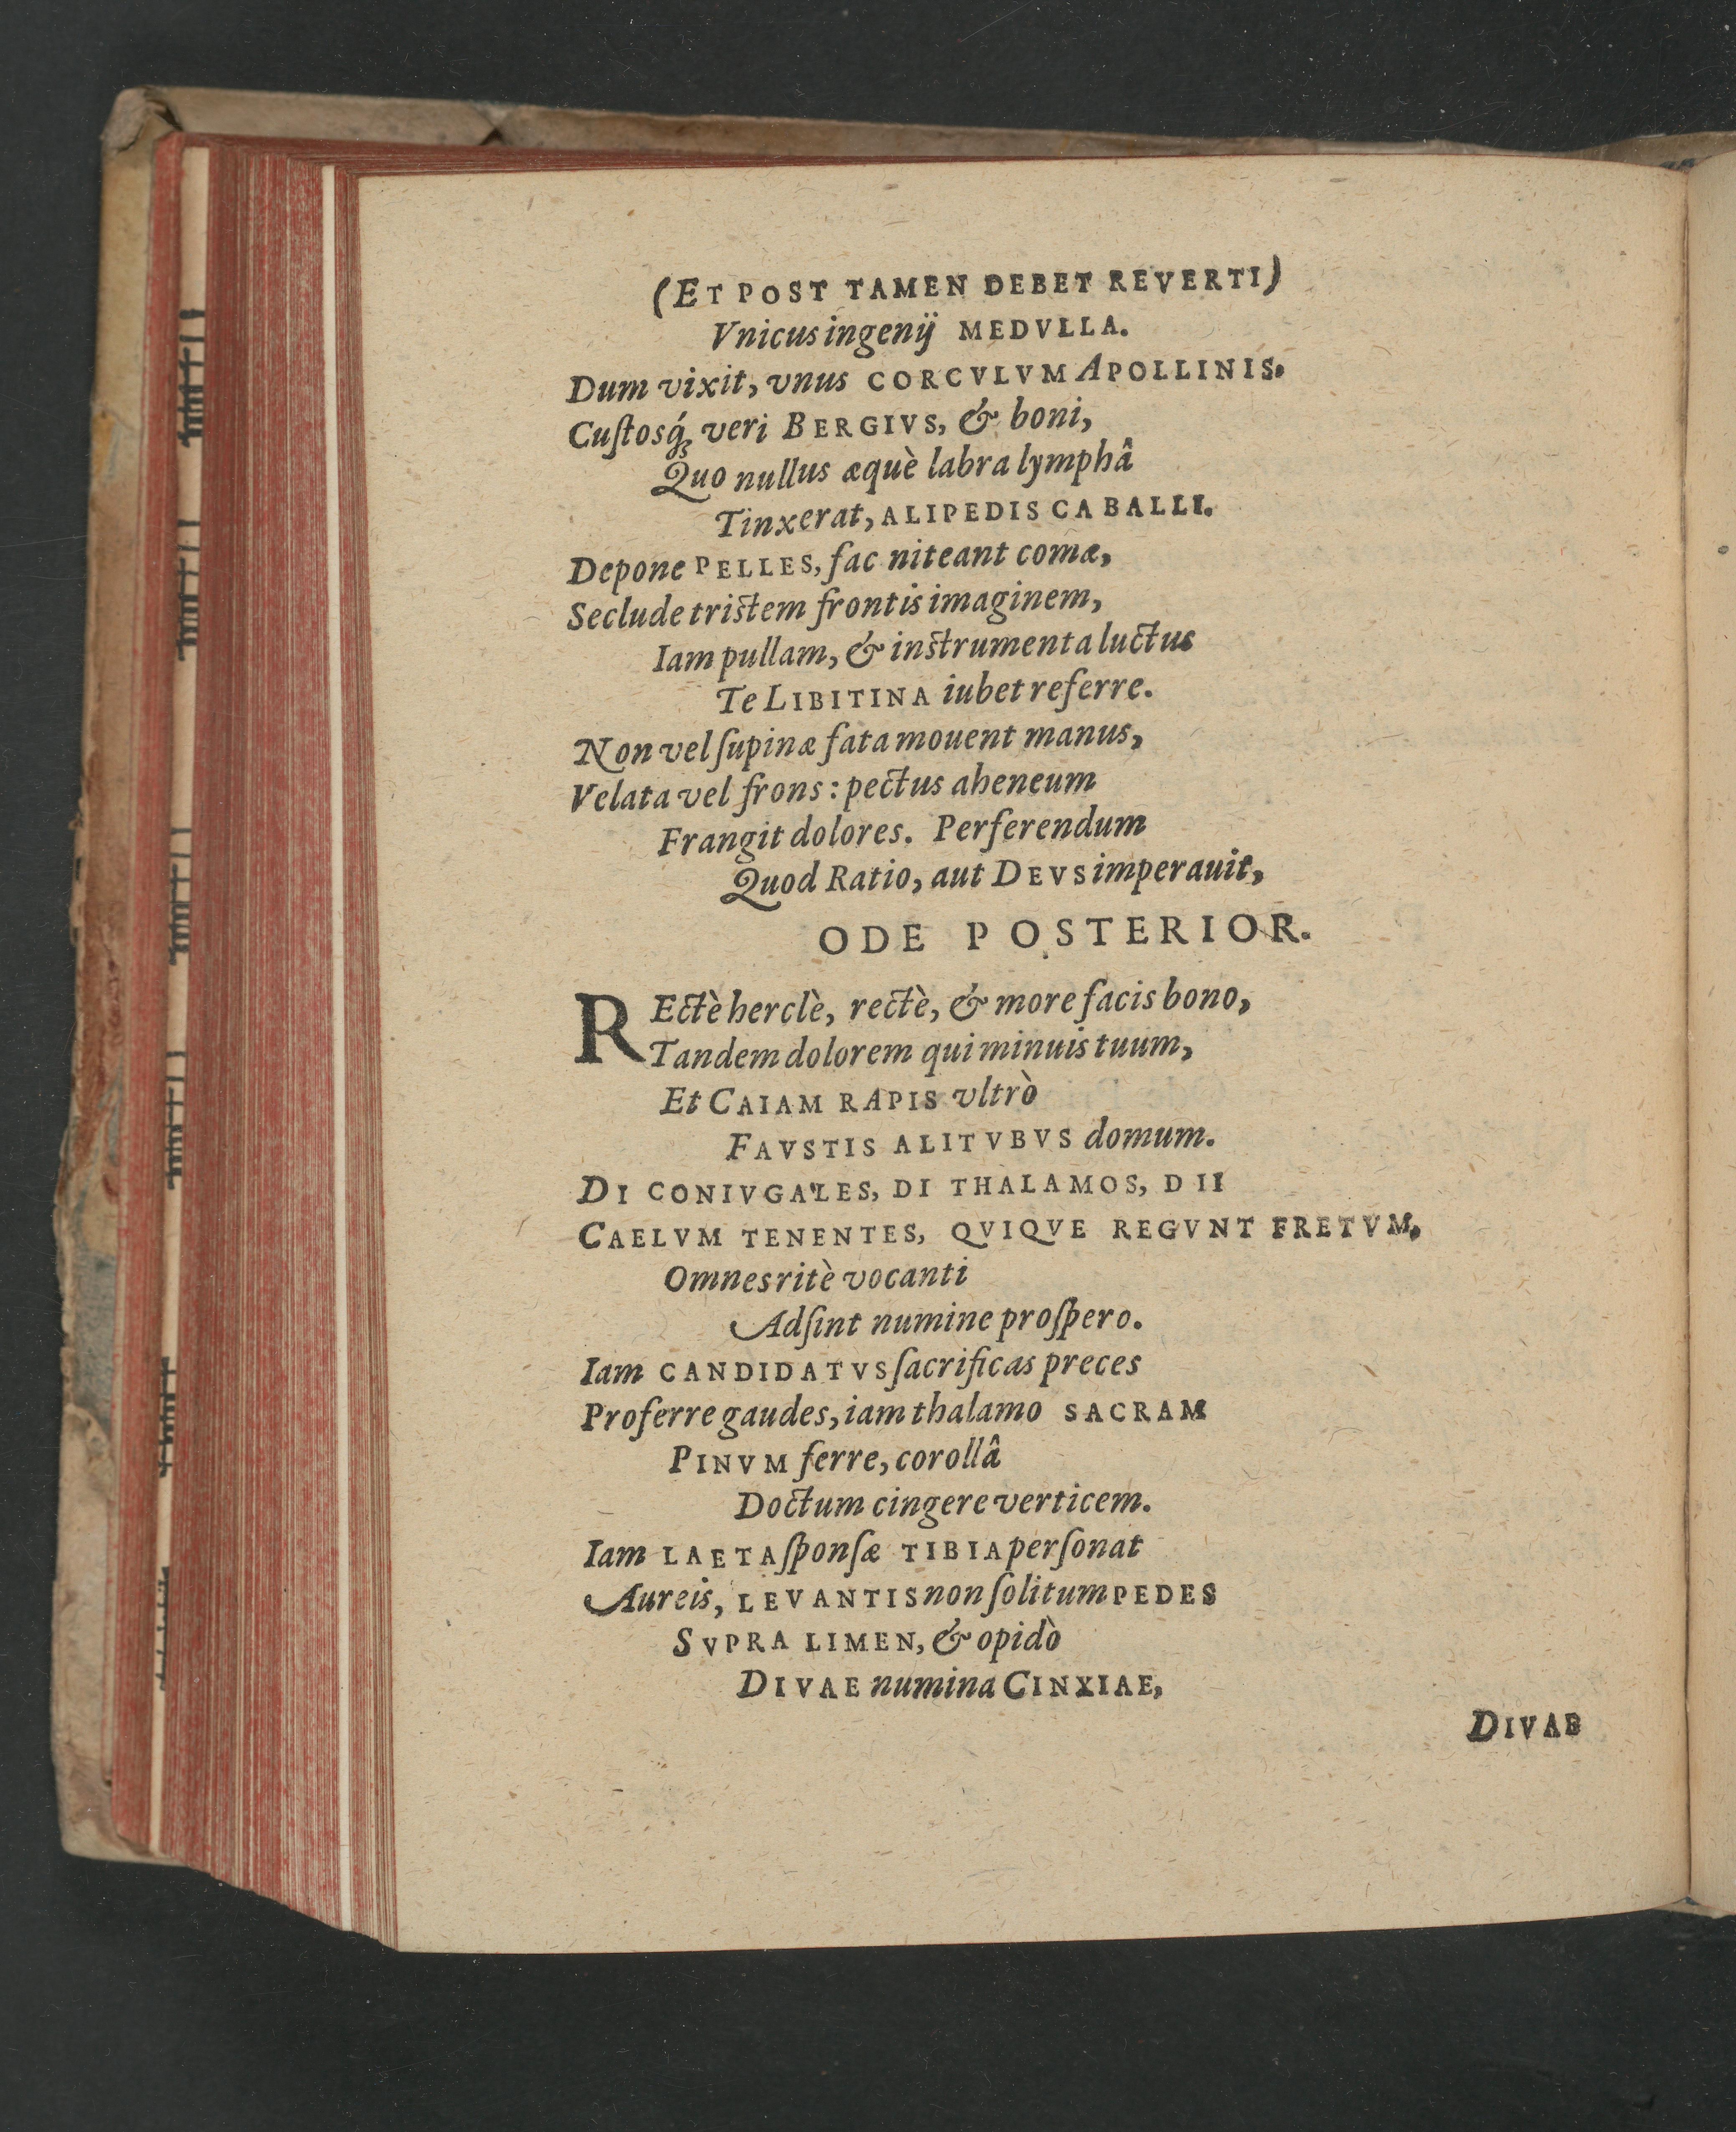 (ET POST TAMEN DEBET REVERTI)
Vnicus ingenij MEDVLLA.
Dum vixit, vnus CORCVLVM APOLLINIS.
Cuſtosq́ꝫ veri BERGIVS, & boni,
Quo nullus æquè labra lymphâ
Tinxerat, ALIPEDIS CABALLI.
Depone PELLES, fac niteant comæ,
Seclude tristem frontis imaginem,
Iam pullam, & instrumenta luctus
Te LIBITINA iubet referre.
Non vel ſupinæ fata mouent manus,
Velata vel frons: pectus aheneum
Frangit dolores. Perferendum
Quod Ratio, aut DEVS imperauit,
ODE POSTERIOR.
REctè herclè, rectè, & more facis bono,
Tandem dolorem qui minuis tuum,
Et CAIAM RAPIS vltrò
FAVSTIS ALITVBVS domum.
DI CONIVGALES, DI THALAMOS, DII
CAELVM TENENTES, QVIQVE REGVNT FRETVM,
Omnes ritè vocanti
Adſint numine proſpero.
Iam CANDIDATVS ſacrificas preces
Proferre gaudes, iam thalamo SACRAM
PINVM ferre, corollâ
Doctum cingere verticem.
Iam LAETA ſponſæ TIBIA perſonat
Aureis, LEVANTIS non ſolitum PEDES
SVPRA LIMEN, & opidò
DIVAE numina CINXIAE,
DIVAE